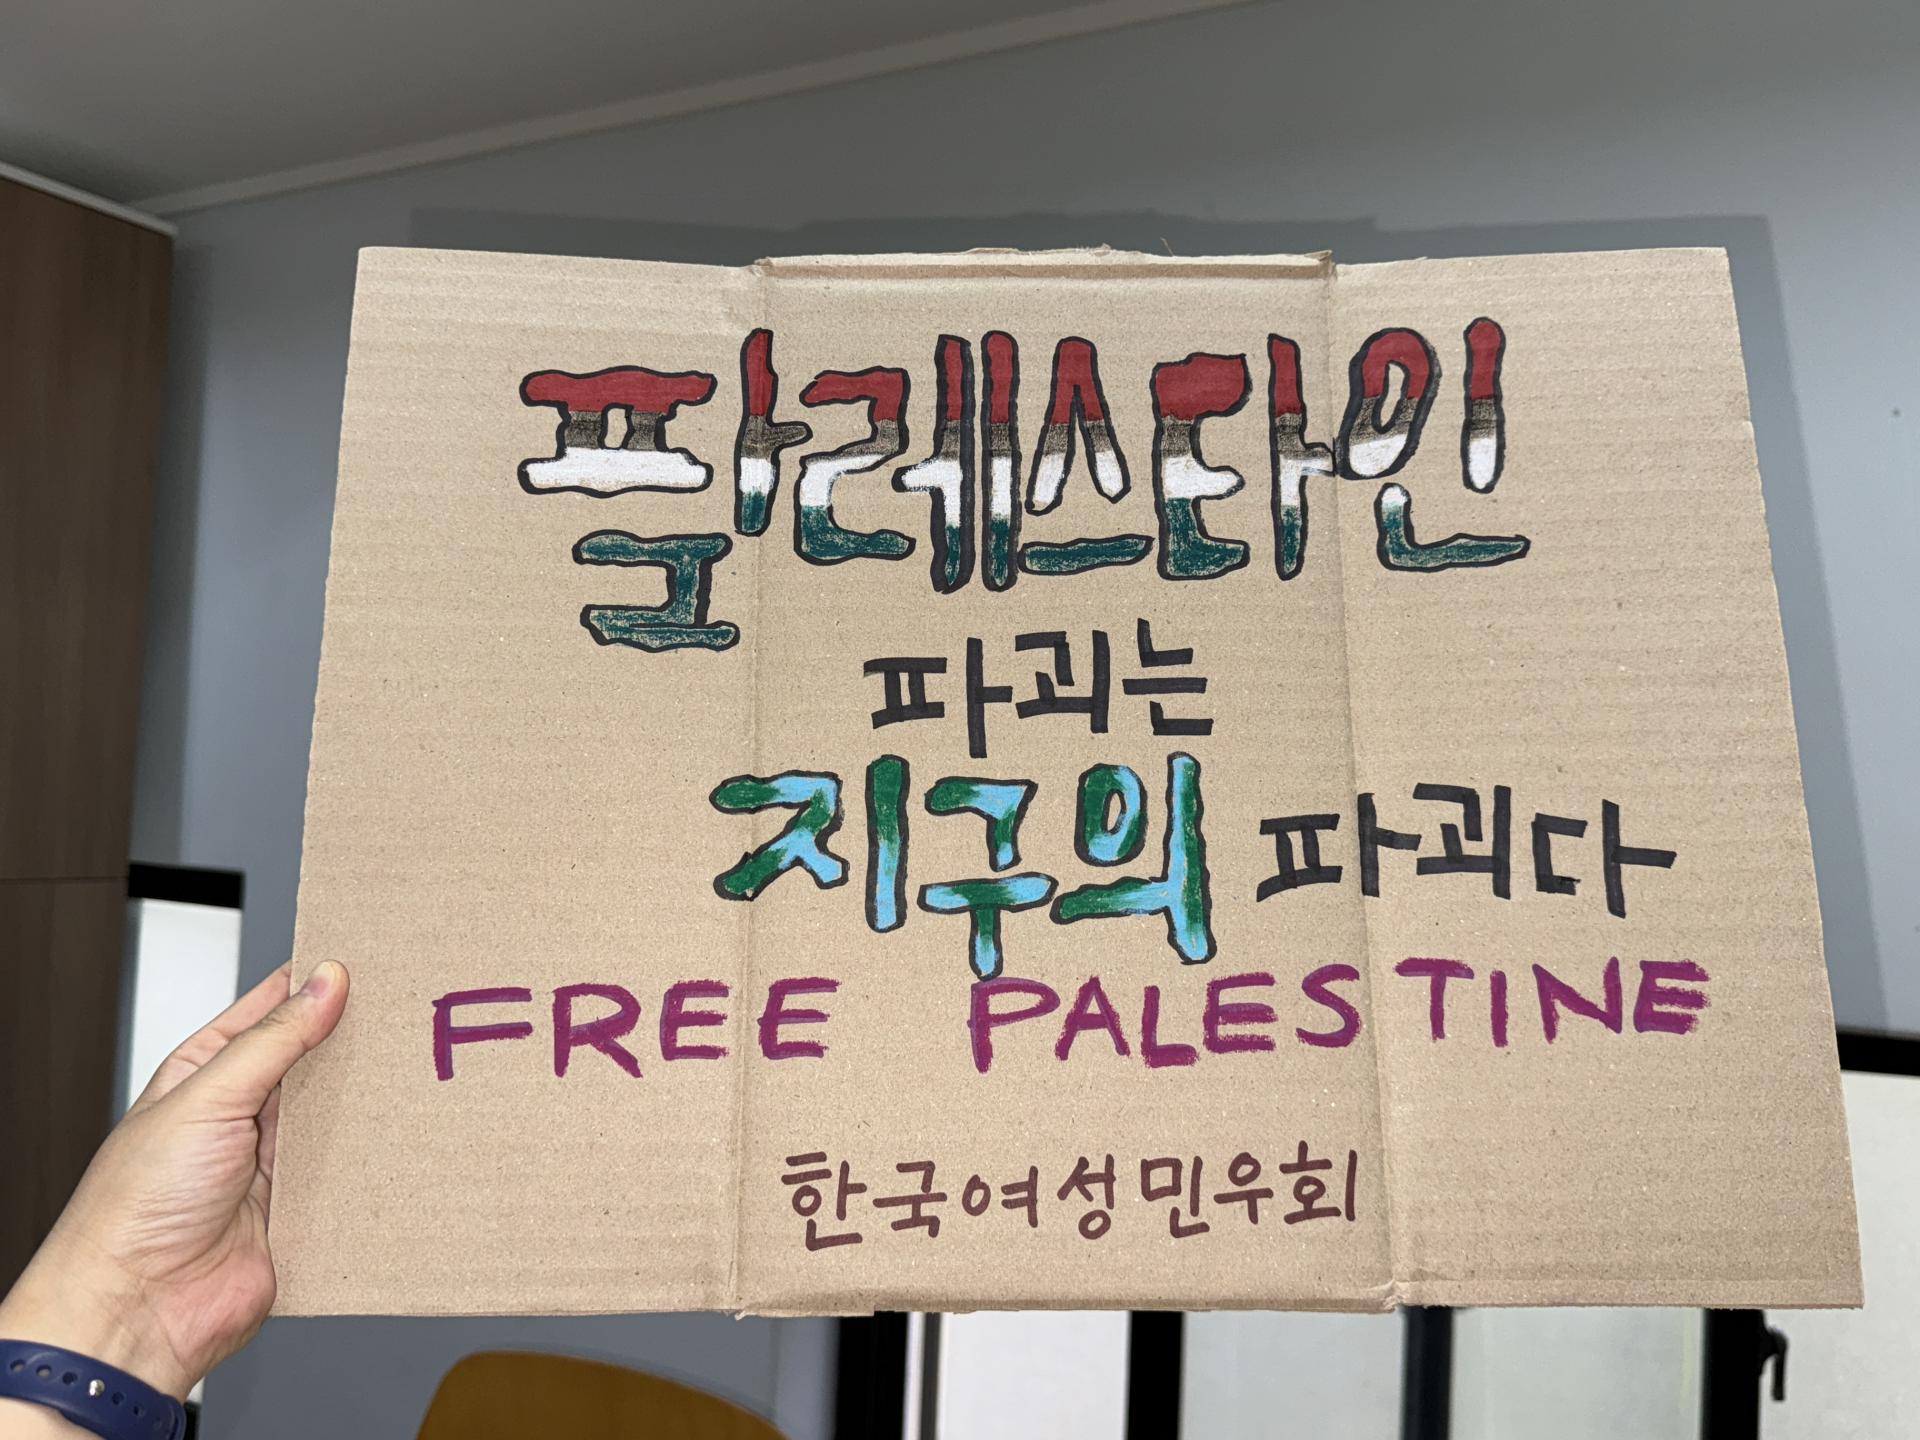 팔레스타인
파괴는
지구의 파괴다
FREE PALESTINE
한국여성민우회